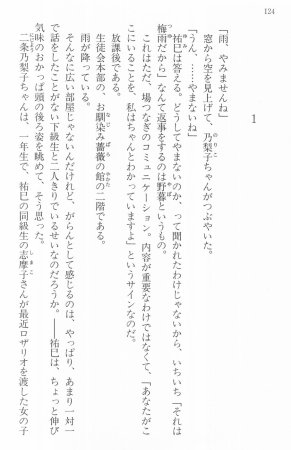 124
1
「雨、やみませんね」
窓から空を見上げて、乃梨子ちゃんがつぶやいた。
「うん、……やまないね」
祐巳は答える。どうしてやまないのか、って聞かれたわけじゃないから、いちいち「それは
梅雨だから」なんて返事をするのは野暮というもの。
これはただ、場つなぎのコミュニケーション。内容が重要なわけではなくて、「あなたがこ
こにいることを、私はちゃんとわかっていますよ」というサインなのだ。
放課後である。
生徒会本部の、お馴染み薔薇の館の二階である。
雨が降っている。
そんなに広い部屋じゃないんだけれど、がらんとして感じるのは、やっぱり、あまり一対一
で話をしたことがない下級生と二人きりでいるせいなのだろうか。――祐巳は、ちょっと伸び
気味のおかっぱ頭の後ろ姿を眺めて、そう思った。
二条乃梨子ちゃんは、一年生で、祐巳の同級生の志摩子さんが最近ロザリオを渡した女の子